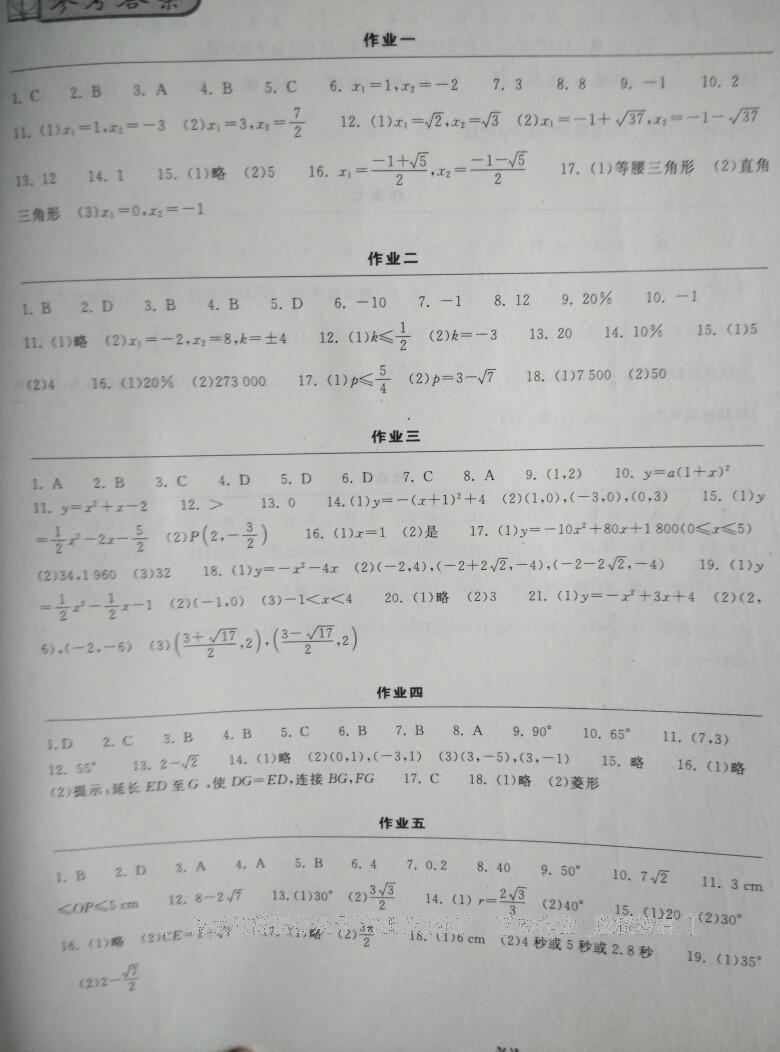 参考答案
作业一
1. C 2. B 3. A 4. B 5. C 6. x₁=1,x₂=-2 7. 3 8. 8 9. -1 10. 2
11. (1)x₁=1,x₂=-3 (2)x₁=3,x₂=7/2 12. (1)x₁=√2,x₂=√3 (2)x₁=-1+√37,x₂=-1-√37
13. 12 14. 1 15. (1)略 (2)5 16. x₁=(-1+√5)/2,x₂=(-1-√5)/2 17. (1)等腰三角形 (2)直角
三角形 (3)x₁=0,x₂=-1
作业二
1. B 2. D 3. B 4. B 5. D 6. -10 7. -1 8. 12 9. 20% 10. -1
11. (1)略 (2)x₁=-2,x₂=8,k=±4 12. (1)k≤1/2 (2)k=-3 13. 20 14. 10% 15. (1)5
(2)4 16. (1)20% (2)273 000 17. (1)p≤5/4 (2)p=3-√7 18. (1)7 500 (2)50
作业三
1. A 2. B 3. C 4. D 5. D 6. D 7. C 8. A 9. (1,2) 10. y=a(1+x)²
11. y=x²+x-2 12. > 13. 0 14. (1)y=-(x+1)²+4 (2)(1,0),(-3,0),(0,3) 15. (1)y
=1/2x²-2x-5/2 (2)P(2,-3/2) 16. (1)x=1 (2)是 17. (1)y=-10x²+80x+1 800(0≤x≤5)
(2)34,1 960 (3)32 18. (1)y=-x²-4x (2)(-2,4),(-2+2√2,-4),(-2-2√2,-4) 19. (1)y
=1/2x²-1/2x-1 (2)(-1,0) (3)-1<x<4 20. (1)略 (2)3 21. (1)y=-x²+3x+4 (2)(2,
6),(-2,-6) (3)((3+√17)/2,2),((3-√17)/2,2)
作业四
1. D 2. C 3. B 4. B 5. C 6. B 7. B 8. A 9. 90° 10. 65° 11. (7,3)
12. 55° 13. 2-√2 14. (1)略 (2)(0,1),(-3,1) (3)(3,-5),(3,-1) 15. 略 16. (1)略
(2)提示:延长ED至G,使DG=ED,连接BG,FG 17. C 18. (1)略 (2)菱形
作业五
1. B 2. D 3. A 4. A 5. B 6. 4 7. 0.2 8. 40 9. 50° 10. 7√2 11. 3 cm
≤OP≤5 cm 12. 8-2√7 13. (1)30° (2)3√3/2 14. (1) r=2√3/3 (2)40° 15. (1)20 (2)30°
16. (1)略 17. (1)略 (2)3π/2 18. (1)6 cm (2)4秒或5秒或2.8秒 19. (1)35°
(2)2-√7/2